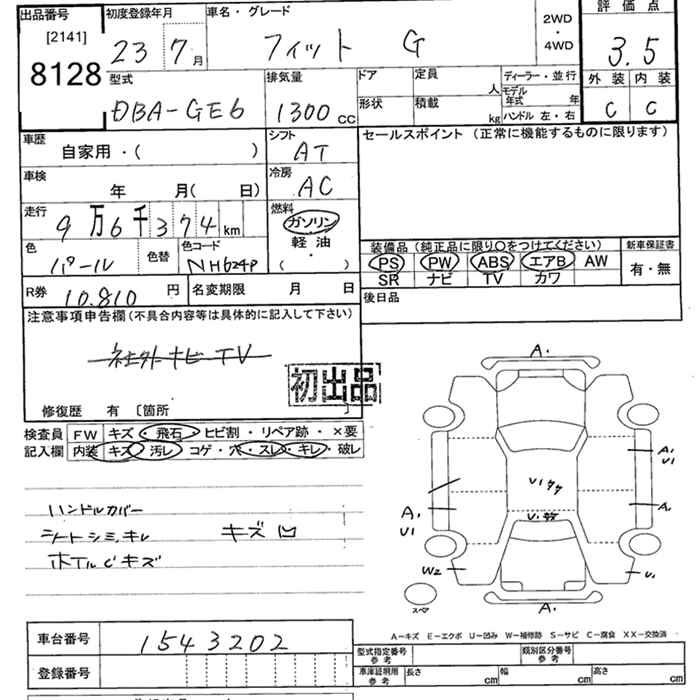 出品番号 初度登録年月 車名・グレード 2WD・4WD 評価点
[2141] 8128 23 7月 フィット G 3.5
型式 排気量 ドア 定員 人 ディーラー・並行 外装 内装
DBA-GE6 1300cc 形状 積載 kg モデル年式 年 C C
ハンドル 左・右
車歴 シフト セールスポイント (正常に機能するものに限ります)
自家用・( ) AT
車検 年 月( 日) 冷房 AC
走行 9万6千374km 燃料 ガソリン
軽油
( ・ )
色 パール 色替 色コード NH624P
装備品 (純正品に限り○をつけてください) 新車保証書
PS PW ABS エアB AW 有・無
SR ナビ TV カワ
R券 10.810円 名変期限 月 日 後日品
注意事項申告欄 (不具合内容等は具体的に記入して下さい)
社外ナビTV
初出品
修復歴 有 [箇所 ]
検査員 FW キズ・飛石・ヒビ割・リペア跡・×要
記入欄 内装 キズ・汚レ・コゲ・穴・スレ・キレ・破レ
ハンドルカバー
シートシミ、キレ キズ凹
ホイルCキズ
A.
A. U1
U1タタ
U.
A. U1
A.
W2
U.
A.
スペア
A-キズ E-エクボ U-凹み W-補修跡 S-サビ C-腐食 XX-交換済
車台番号 1543202
型式指定番号 参考 類別区分番号 参考
登録番号
車庫証明用 参考 長さ cm 幅 cm 高さ cm